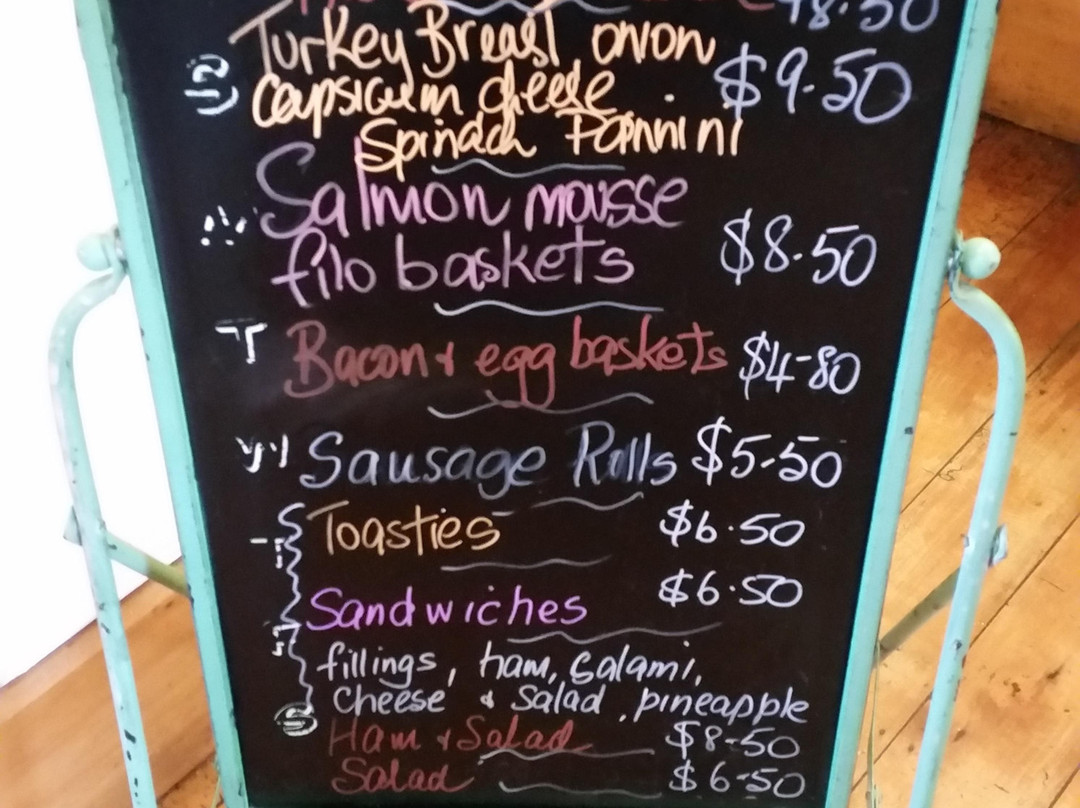 Turkey Breast onion
Capsicum cheese $9.50
Spinach Pannini
Salmon mousse
filo baskets $8.50
Bacon & egg baskets $4-80
Sausage Rolls $5-50
Toasties $6.50
Sandwiches $6.50
fillings, ham, salami,
Cheese & Salad, pineapple
Ham & Salad $8-50
Salad $6-50